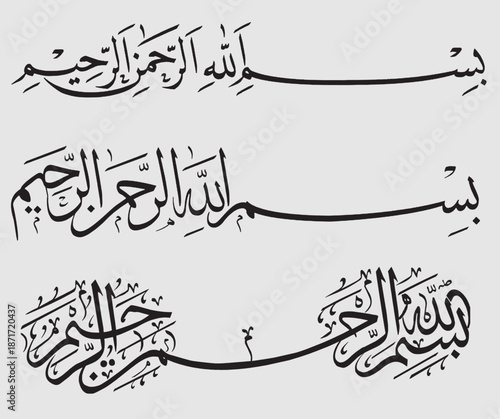 بِسْمِ اللهِ الرَّحْمٰنِ الرَّحِيْمِ
بِسْمِ اللهِ الرَّحْمٰنِ الرَّحِيْمِ
بسم الله الرحمن الرحيم
Adobe Stock | #1871720437